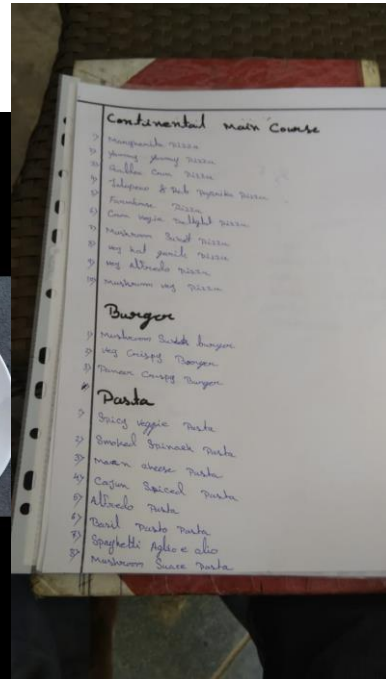 Continental Main Course
1) Margherita Pizza
2) Yummy Yummy Pizza
3) Golden Corn Pizza
4) Jalapeno & Red Paprika Pizza
5) Farmhouse Pizza
6) Corn Veggie Delight Pizza
7) Mushroom Pizza
8) Veg Pizza
9) Veg Alfredo Pizza
10) Mushroom Veg Pizza
Burger
1) Mushroom burger
2) Veg Crispy Burger
3) Paneer Crispy Burger
Pasta
1) Spicy Veggie Pasta
2) Smoked Spinach Pasta
3) cheese Pasta
4) Cajun Spiced Pasta
5) Alfredo Pasta
6) Basil Pasta
7) Spaghetti Aglio e olio
8) Mushroom Pasta